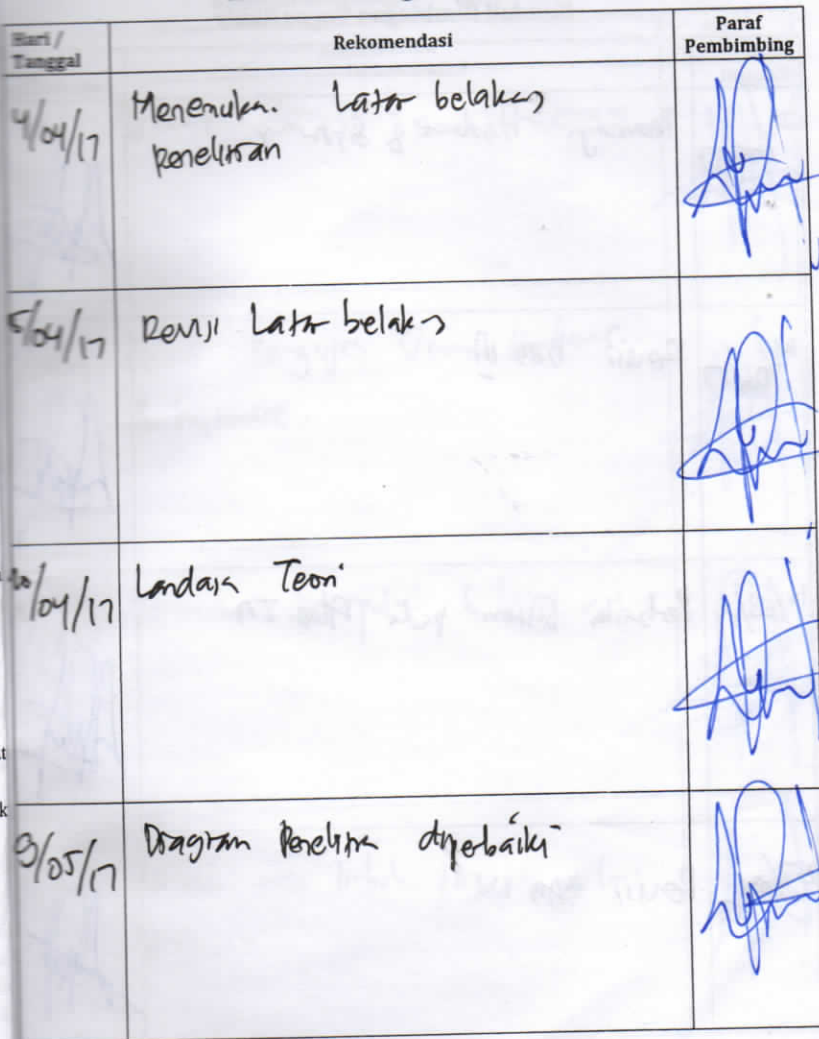 Hari /
Tanggal
Rekomendasi
Paraf
Pembimbing
4/04/17
Menemukan. Latar belakang
penelitian
5/04/17
Revisi Latar belakang
20/04/17
Landasan Teori
9/05/17
Diagram Penelitian diperbaiki
t
k